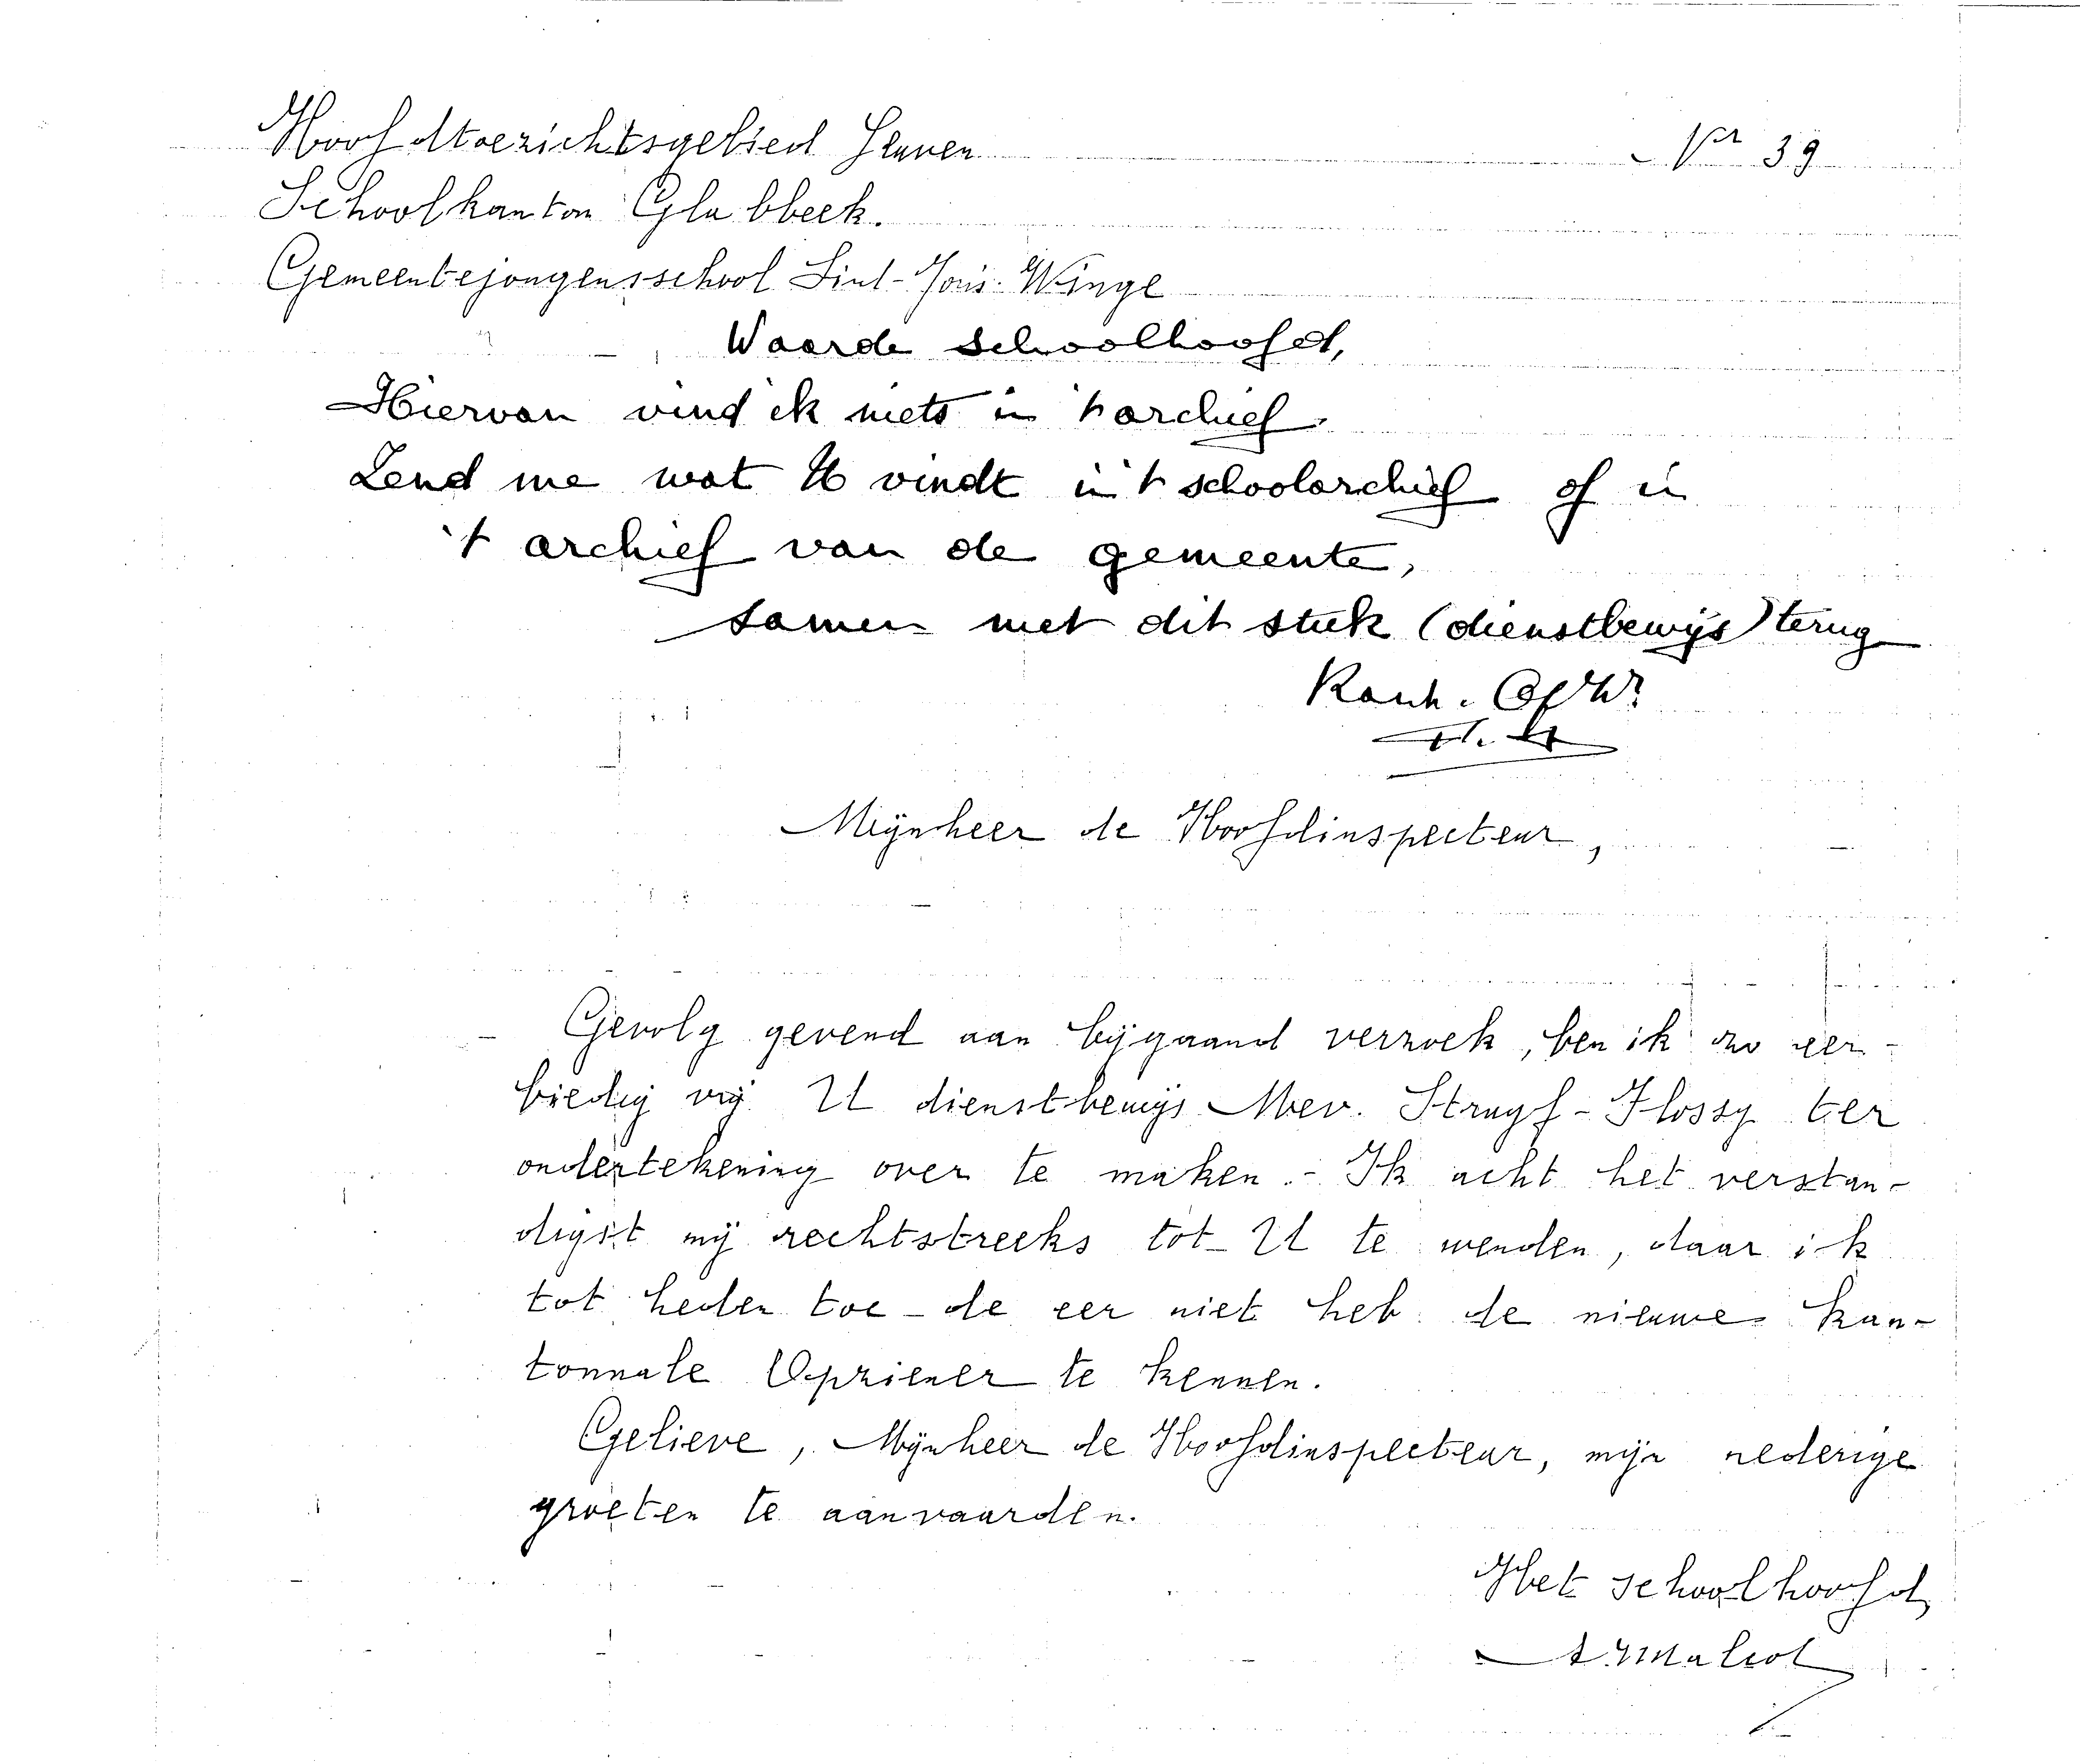 Hoofdtoezichtsgebied Leuven Nr 39
Schoolkanton Glabbeek.
Gemeentejongensschool Sint-Joris-Winge
Waarde schoolhoofd,
Hiervan vind ik niets in 't archief.
Zend me wat U vindt in 't schoolarchief of in
't archief van de gemeente,
samen met dit stuk (dienstbewijs) terug
Kant.
Mijnheer de Hoofdinspecteur,
Gevolg gevend aan bijgaand verzoek, ben ik zo eer-
biedig vrij U dienstbewijs Mev. Struyf-Flossy ter
ondertekening over te maken. - Ik acht het verstan-
digst mij rechtstreeks tot U te wenden, daar ik
tot heden toe de eer niet heb de nieuwe kan-
tonnale Opziener te kennen.
Gelieve, Mijnheer de Hoofdinspecteur, mijn nederige
groeten te aanvaarden.
Het schoolhoofd,